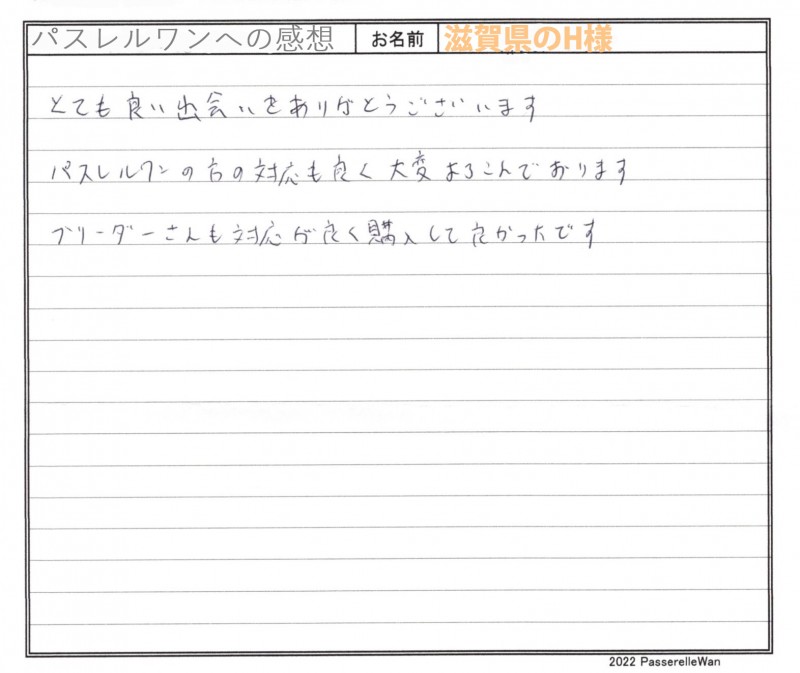 パスレルワンへの感想 お名前 滋賀県のH様
とても良い出会いをありがとうございます
パスレルワンの方の対応も良く大変よろこんでおります
ブリーダーさんも対応が良く購入して良かったです
2022 PasserelleWan